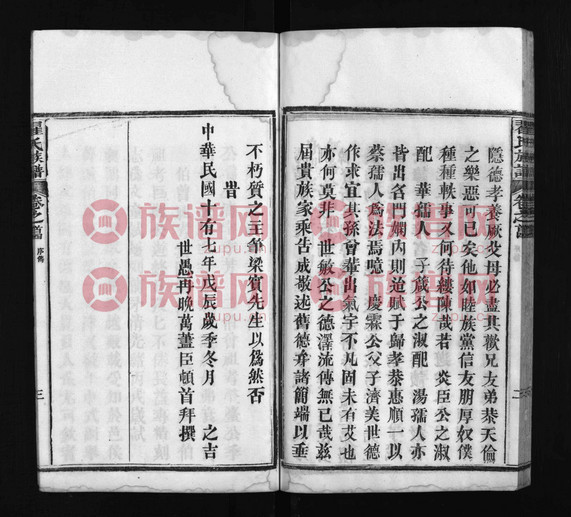 隱德孝養厥父母必盡其歡兄友弟恭天倫
之樂惡可已矣他如睦族黨信友朋厚奴僕
種種軼事又何待縷陳哉若 炎臣公之淑
配 華孺人 子箴公之淑配 湯孺人亦
皆出名門嫻內則迨賦于歸孝恭惠順一以
蔡孺人為法焉噫 慶霖公父子濟美世德
作求宜其孫曾輩出氣宇不凡固未有艾也
亦何莫非 世敏公之德澤流傳無已哉茲
屆貴族家乘告成敬述舊德弁諸簡端以垂
翟氏族譜 卷之首
二
不朽質之主筆梁賓先生以為然否
旹
中華民國十有七年戊辰歲季冬月 之吉
世愚再晚萬藎臣頓首拜撰
翟氏族譜 卷之首 序舊
三
族譜网
zupu.cn
族譜网
zupu.cn
族譜网
zupu.cn
族譜网
zupu.cn